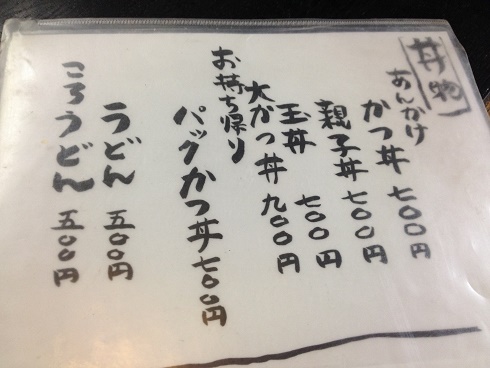 丼物
あんかけ
かつ丼 七〇〇円
親子丼 七〇〇円
玉丼 七〇〇円
大かつ丼 九〇〇円
お持ち帰り
パックかつ丼 七〇〇円
うどん 五〇〇円
ころうどん 五〇〇円